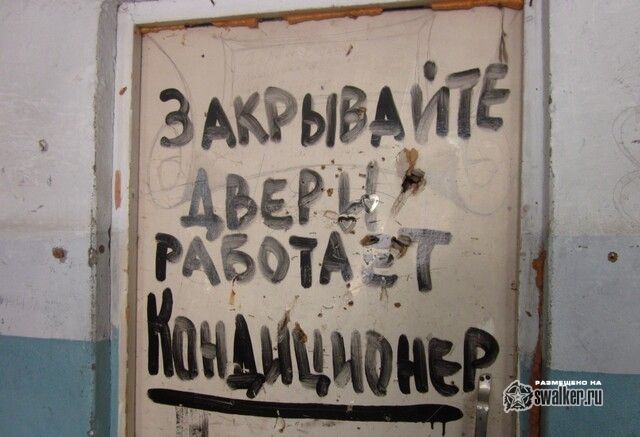 ЗАКРЫВАЙТЕ
ДВЕРИ
РАБОТАЕТ
КОНДИЦИОНЕР
РАЗМЕЩЕНО НА
swalker.ru